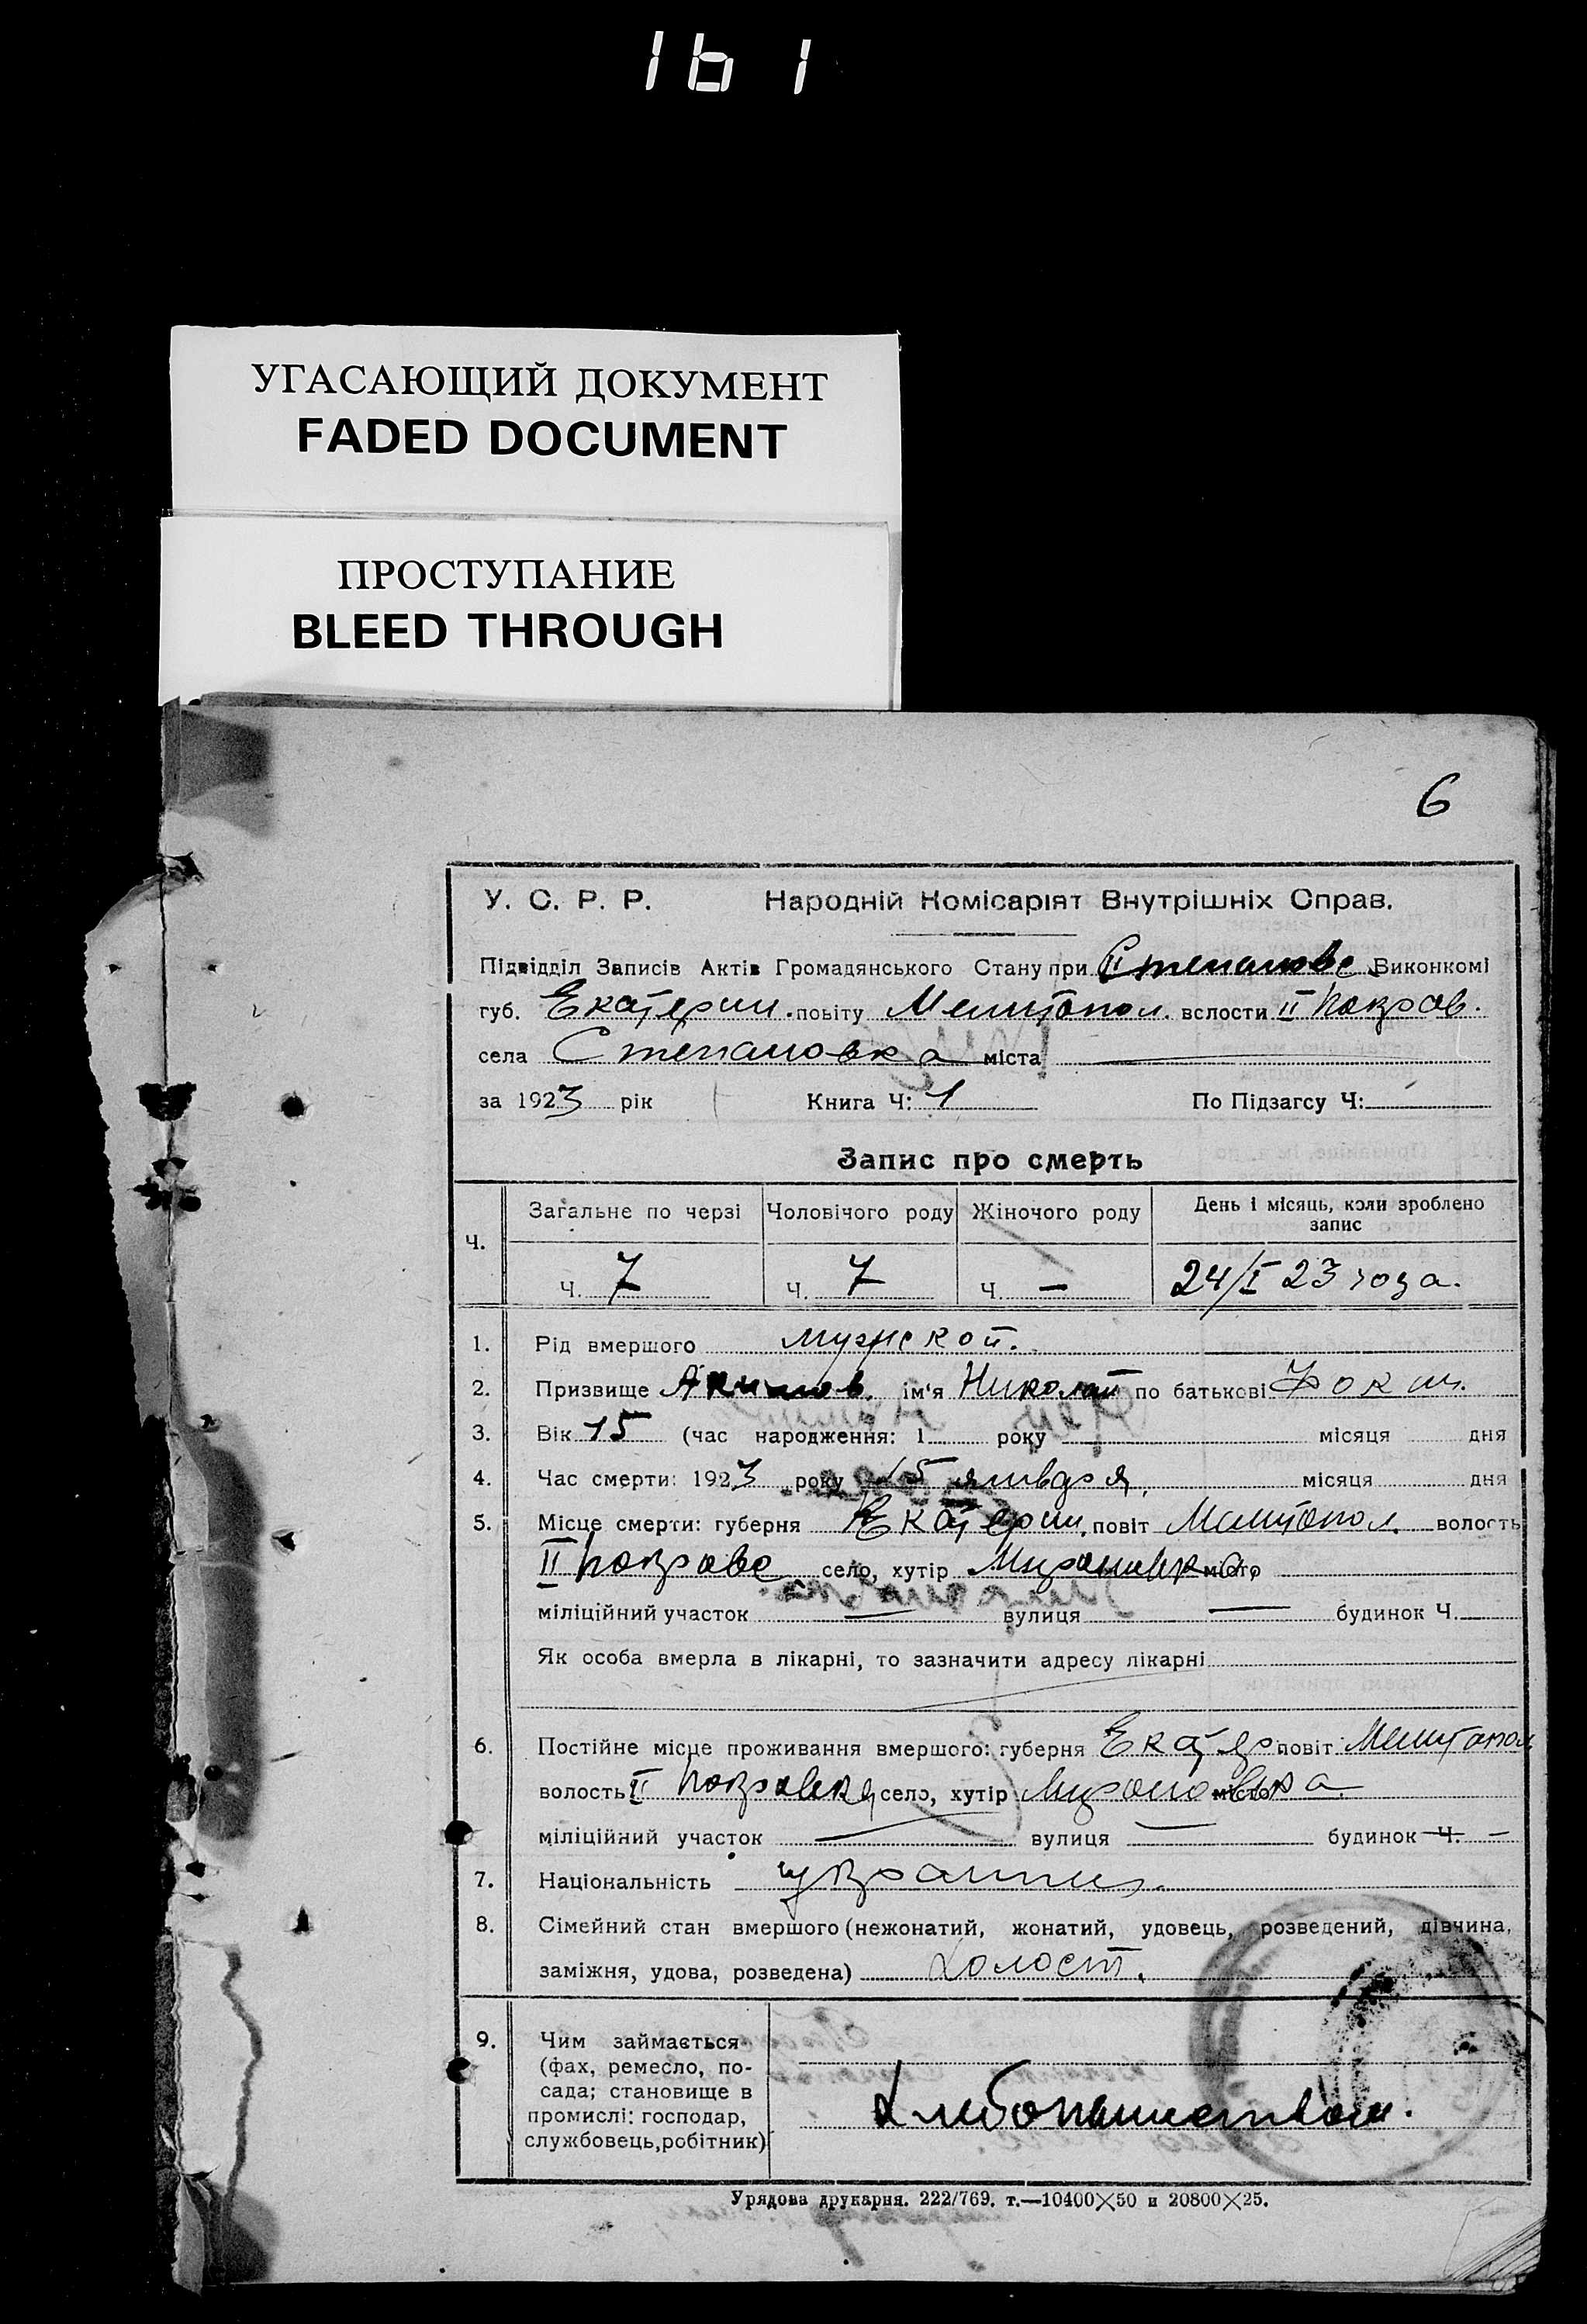 161
УГАСАЮЩИЙ ДОКУМЕНТ
FADED DOCUMENT
ПРОСТУПАНИЕ
BLEED THROUGH
6
У. С. Р. Р. Народній Комісаріят Внутрішніх Справ.
Підвідділ Записів Актів Громадянського Стану при II Степановс. Виконкомі
губ. Екатерин. повіту Мелитопол. волости II Покров.
села Степановка міста
за 1923 рік Книга Ч: 1 По Підзагсу Ч:
Запис про смерть
Ч. Загальне по черзі Чоловічого роду Жіночого роду День і місяць, коли зроблено запис
Ч. 7 Ч. 7 Ч. — 24/I 23 года.
1. Рід вмершого мужской.
2. Призвище Акимов. ім'я Николай по батькові Фокич.
3. Вік 15 (час народження: 1 року місяця дня
4. Час смерти: 1923 року 15 января, місяця дня
5. Місце смерти: губерня Екатерин. повіт Мелитопол. волость
II Покровс село, хутір Мироновка, місто
міліційний участок — вулиця — будинок Ч.
Як особа вмерла в лікарні, то зазначити адресу лікарні
6. Постійне місце проживання вмершого: губерня Екатер повіт Мелитопол
волость II Покровка, село, хутір Мироновка місто
міліційний участок — вулиця — будинок Ч. —
7. Національність украинец.
8. Сімейний стан вмершого (нежонатий, жонатий, удовець, розведений, дівчина,
заміжня, удова, розведена) Холост.
9. Чим займається
(фах, ремесло, по-
сада; становище в
промислі: господар,
службовець, робітник)
Хлебопашеством.
Урядова друкарня. 222/769. т.—10400×50 и 20800×25.